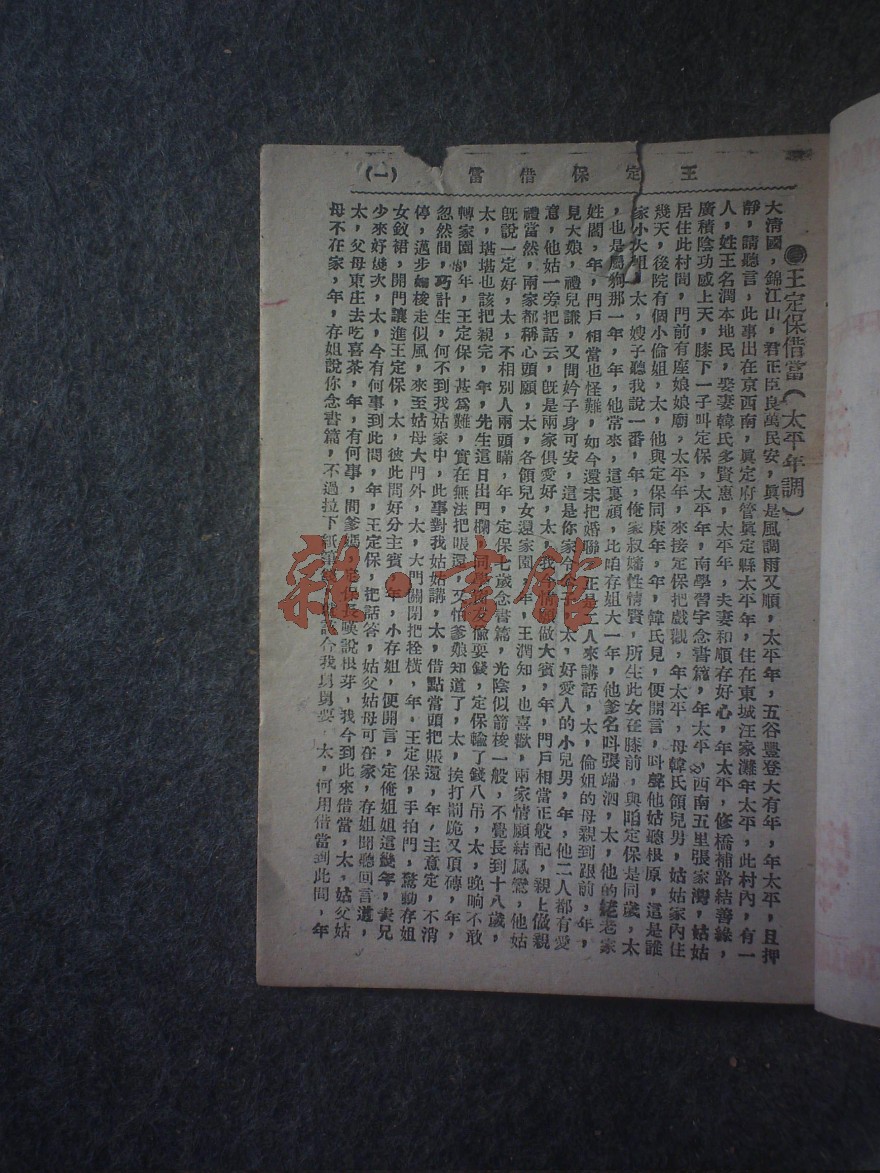 王定保借當 (一)
●王定保借當(太平年調)
大清國，錦江山，君正臣良萬民安，眞是風調雨又順，太平年，五谷豐登大有年，年太平，且押
靜，請聽言，此事出在京西南，眞定府管眞定縣太平年，住在東城汪家灘年太平，此村內，有一
人，姓王名潤本地民，娶妻韓氏多賢惠，太平年，夫妻和順存好心，年太平，修橋補路結善緣，
廣積陰功感上天，膝下一子叫定保，太平年，南學習字念書篇，年太平，西南五里張家灣，姑姑
居住此村間，門前有座娘娘廟，太平年，來接定保把戲觀，年太平，母韓氏領兒男，姑姑家內住
幾天，後院有個小倫姐，太，他與定保同庚年，年，韓氏見，便開言，叫聲他姑聽根原，這是誰
家小大姐，太，嫂子聽我說一番，年，俺家叔嬸性情賢，所生此女在膝前，與咱定保是同歲，太
，也是屬狗那一年，年，他常來，這裏頑，比咱存姐大一年，他爹名叫張端泗，太，他的老家
姓閻，年，門戶相當也怪難，如今還未把婚聯，正是二人來講話，太，倫姐的母親到跟前，年，
見大娘，禮兒謙，又問妗子身可安，這是你家令，太，好愛人的小兒男，年，他二人都有愛
意，他姑一旁把話云，旣是兩家俱愛好，太，我情願做大賓，年，門戶相當正般配，親上做親
禮當然，兩家都稱心頭願，太，各領兒女還家園，年，王潤知，也喜歡，兩家情願結鳳鸞，他姑
旣說一定好，太，不相別人兩頭瞞，年，定保七歲念書篇，光陰似箭梭一般，不覺長到十八歲，
太，堪堪也該把親完，年，先生這日出門欄，同學朋友偸耍錢，定保輸了錢八吊，太，晚晌不敢
轉家園，年，王定保，甚爲難，實在無法把賬還，又怕爹娘知道了，太，挨打罰跪又頂磚，年，
忽然間，巧計生，何不到我姑家中，此事對我姑姑講，太，借點當頭把賬還，年，主意定，不消
停，邁步如梭走似風，來至姑母大門外，太，大門關閉把拴橫，年，王定保，手拍門，驚動存姐
女釵裙，開門讓進王定保，太，彼此問好分主賓，年，小存姐，便開言，定俺姐姐這幾年，表兄
少來好幾次，太，今有何事到此間，年，王定保，把話答，姑父姑母可在家，存姐聞聽回言道，
太，父母東庄去吃喜茶，年，有何事，問爹媽，定保長嘆說根芽，我今到此來借當，太，姑父姑
母不在家，年，存姐說你念書篇，不過拉下紙筆，該合我舅舅要，太，何用借當到此間，年
雜·書館